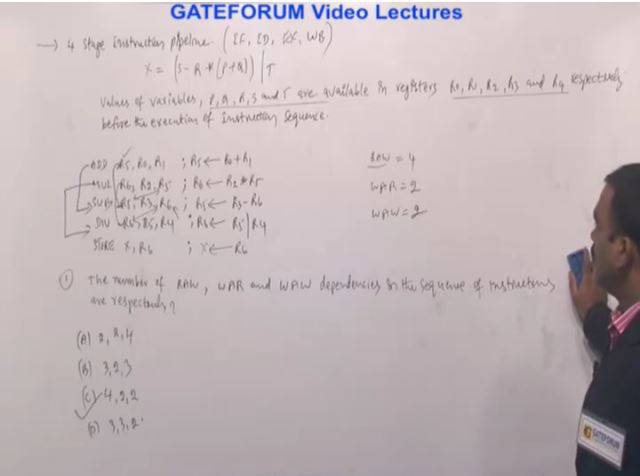 GATEFORUM Video Lectures
→ 4 Stage Instruction pipeline. (IF, ID, EX, WB)
X = (S - R * (P+Q)) / T
Values of variables, P, Q, R, S and T are available in registers R0, R1, R2, R3 and R4 respectively
before the execution of Instruction Sequence.
ADD R5, R0, R1 ; R5 ← R0 + R1
MUL R6, R2, R5 ; R6 ← R2 * R5
SUB R5, R3, R6 ; R5 ← R3 - R6
DIV R6, R5, R4 ; R6 ← R5 / R4
STORE X, R6 ; X ← R6
RAW = 4
WAR = 2
WAW = 2
① The number of RAW, WAR and WAW dependencies in the sequence of instructions
are respectively?
(A) 2, 2, 4
(B) 3, 2, 3
(C) 4, 2, 2
(D) 3, 3, 2
GATEFORUM